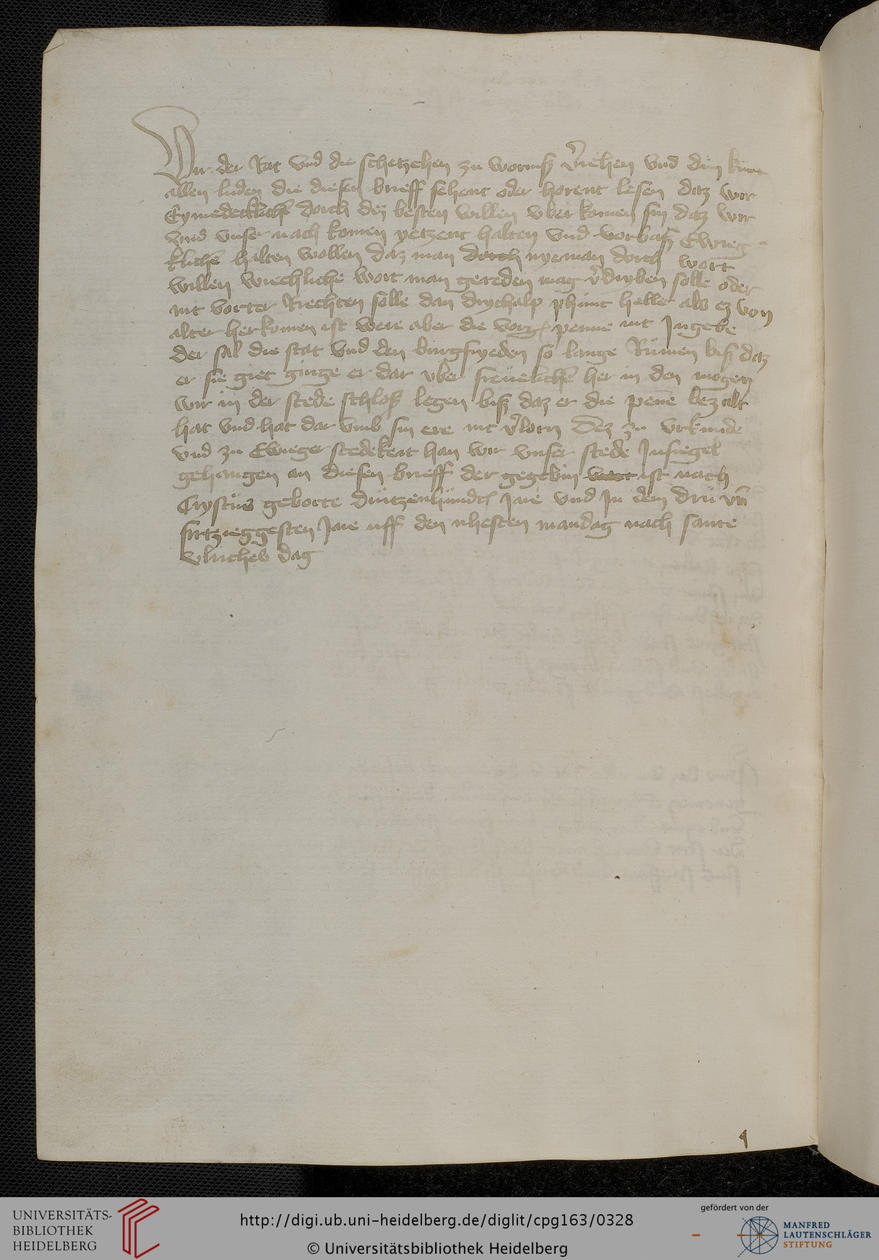 Wir der Rat vnd die schetzehen zu wormß v̾iehen vnd dun kunt
allen luden die diesen brieff sehent oder horent lesen daz wir
Eymudecklich dorch des besten willen vber komen sin daz wir
vnd vnser nach komen yetzent halten vnd vorbaß Ewiег
klich halten wollen daz man dorch nyeman dorch wort
willen wuechliche wort man gereden mag v̾dryben solle oder
nit vorter Riechten solle dan drychalp phunt heller als ez von
alter herkomen ist were aber die vorg penne nit Ingebe
der sal die stat vnd den burgfryeden so lange Rumen biß daz
er sie giet ginge er dar vber freuelich her in den mogen
wir in der stede schloß legen biß daz er die pene bezalt
hat vnd hat dar vmb sin ere nit v̾lorn Dez zu vrkunde
vnd zu Ewieger stedekeit han wir vnser stede Insiegel
gehangen an diesen brieff der gegebin ist nach
Crystus geborte drutzenhundt Jare vnd In dem dru vn̄
firtzieggesten Jare uff den nhesten mandag nach sante
vlrichs dag
UNIVERSITÄTS-
BIBLIOTHEK
HEIDELBERG
http://digi.ub.uni-heidelberg.de/diglit/cpg163/0328
© Universitätsbibliothek Heidelberg
gefördert von der
MANFRED
LAUTENSCHLÄGER
STIFTUNG